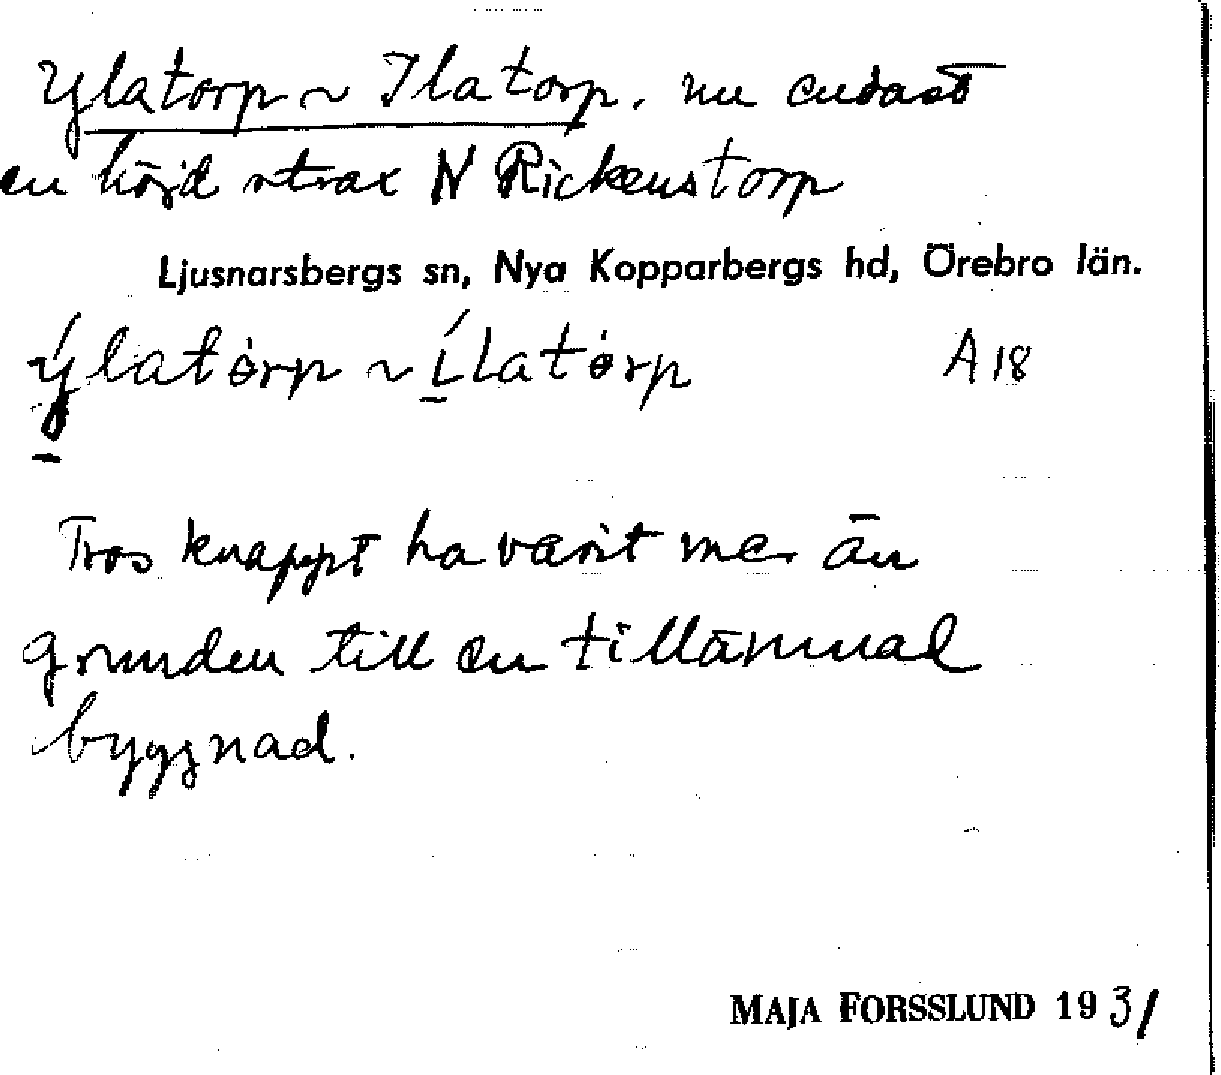 Ylatorp ~ Ilatorp. nu endast
en höjd strax N Rickenstorp
Ljusnarsbergs sn, Nya Kopparbergs hd, Örebro län.
A 18
Tros knappt ha varit mer än
grunden till en tillämnad
byggnad.
MAJA FORSSLUND 1931